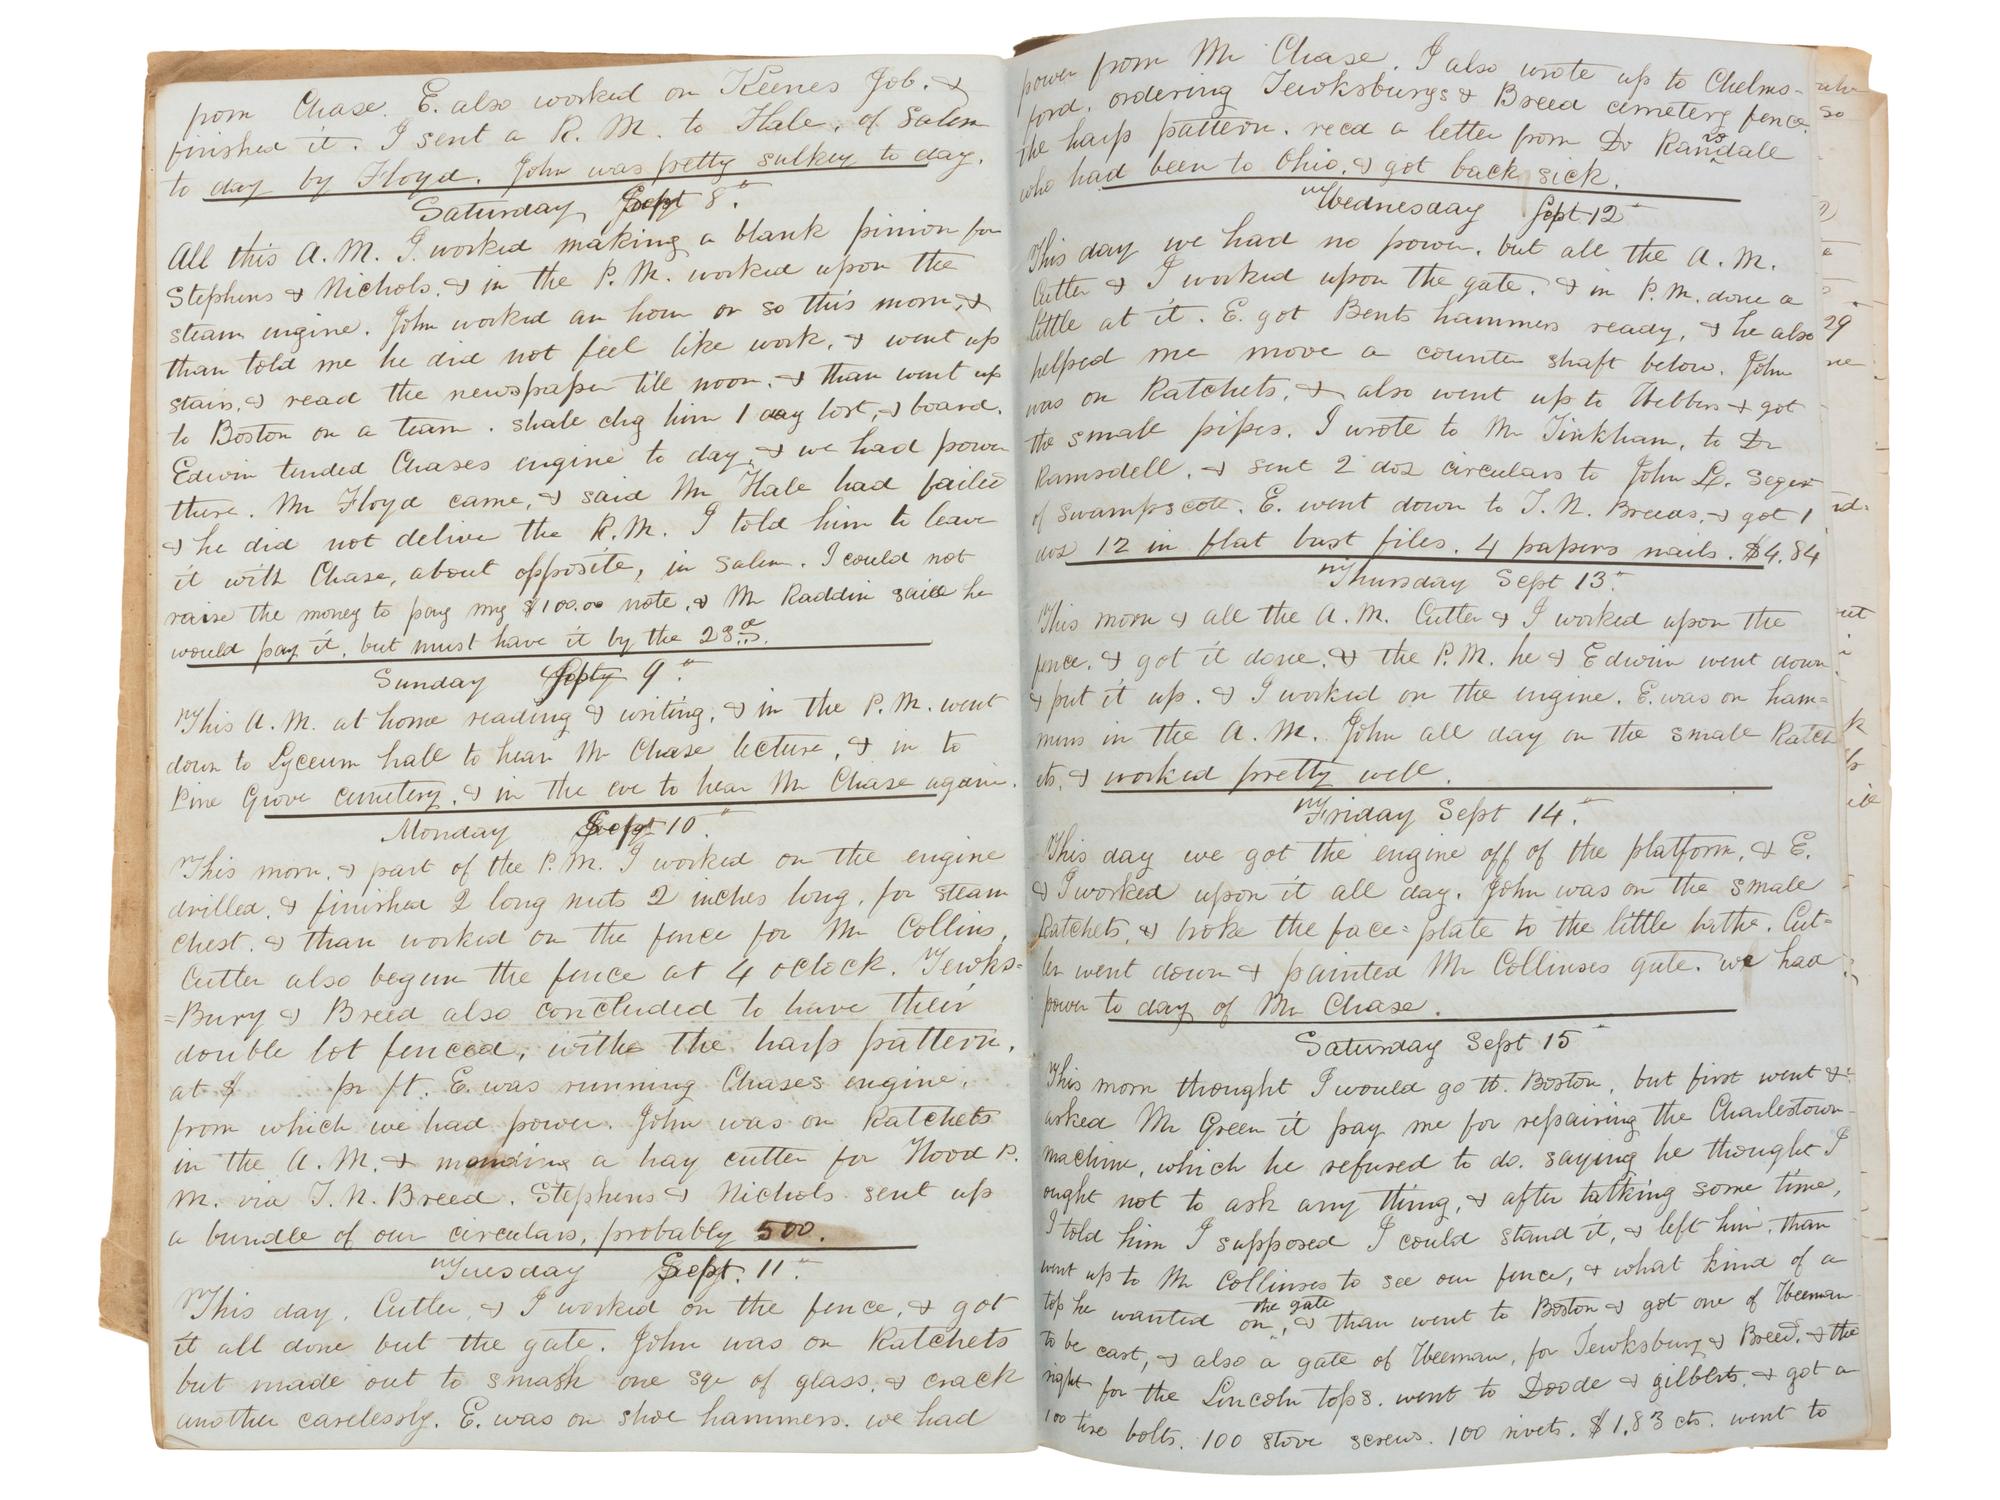 from Chase. E. also worked on Keenes Job. &
finished it. I sent a R. M. to Hale, of Salem
to day by Floyd. John was pretty sulkey to day.
Saturday, Sept 8th.
All this A.M. I worked making a blank pinion for
Stephens & Nichols. & in the P.M. worked upon the
steam engine. John worked an hour or so this morn, &
than told me he did not feel like work, & went up
stairs, & read the newspaper till noon. & than went up
to Boston on a team. shall chg him 1 day lost, & board.
Edwin tended Chases engine to day, & we had power
there. Mr Floyd came, & said Mr Hale had failed
& he did not deliver the R.M. I told him to leave
it with Chase, about opposite, in Salem. I could not
raise the money to pay my $100.00 note, & Mr Raddin said he
would pay it, but must have it by the 23rd.
Sunday Sept 9th.
This A.M. at home reading & writing, & in the P.M. went
down to Lyceum hall to hear Mr Chase lecture, & in to
Pine Grove cemetery, & in the eve to hear Mr Chase again.
Monday Sept 10th.
This morn. & part of the P.M. I worked on the engine
drilled, & finished 2 long nuts 2 inches long, for steam
chest. & than worked on the fence for Mr Collins,
Cutter also begun the fence at 4 oclock. Tewks=
=Bury & Breed also concluded to have their
double lot fenced, with the harp pattern,
at $ pr ft. E. was running Chases engine,
from which we had power. John was on Ratchets
in the A.M. & mending a hay cutter for Hood P.
M. via T. N. Breed. Stephens & Nichols sent up
a bundle of our circulars, probably 500.
Tuesday Sept. 11th.
This day, Cutter, & I worked on the fence, & got
it all done but the gate. John was on Ratchets
but made out to smash one sqr of glass, & crack
another carelessly. E. was on shoe hammers. we had
power from Mr Chase. I also wrote up to Chelms-
ford, ordering Tewksburys & Breed cemetery fence
the harp pattern. recd a letter from Dr Ramsdale
who had been to Ohio, & got back sick.
Wednesday Sept 12th
This day we had no power, but all the A.M.
Cutter & I worked upon the gate. & in P.M. done a
little at it. E. got Bents hammers ready, & he also
helped me move a counter shaft below. John
was on Ratchets, & also went up to Webbers & got
the small pipes. I wrote to Mr Tinkham, to Dr
Ramsdell, & sent 2 doz circulars to John L. Seger
of Swampscott. E. went down to T. N. Breeds, & got 1
doz 12 in flat bast files. 4 papers nails. $4.84
Thursday Sept 13th
This morn & all the A.M. Cutter & I worked upon the
fence, & got it done, & the P.M. he & Edwin went down
& put it up. & I worked on the engine. E. was on ham=
mers in the A.M. John all day on the small Ratch
ets, & worked pretty well.
Friday Sept 14th.
This day we got the engine off of the platform, & E.
& I worked upon it all day. John was on the small
Ratchets, & broke the face=plate to the little lathe. Cut=
ter went down & painted Mr Collinses gate. we had
power to day of Mr Chase.
Saturday Sept 15th
This morn thought I would go to Boston, but first went &
asked Mr Green to pay me for repairing the Charlestown
machine, which he refused to do. saying he thought I
ought not to ask any thing, & after talking some time,
I told him I supposed I could stand it, & left him. than
went up to Mr Collinses to see our fence, & what kind of a
top he wanted on the gate, & than went to Boston & got one of Weeman
to be cast, & also a gate of Weeman, for Tewksbury & Breed, & the
right for the Lincoln tops. went to Doode & gilberts, & got a
100 tire bolts. 100 stove screws. 100 rivets. $1.83 cts. went to